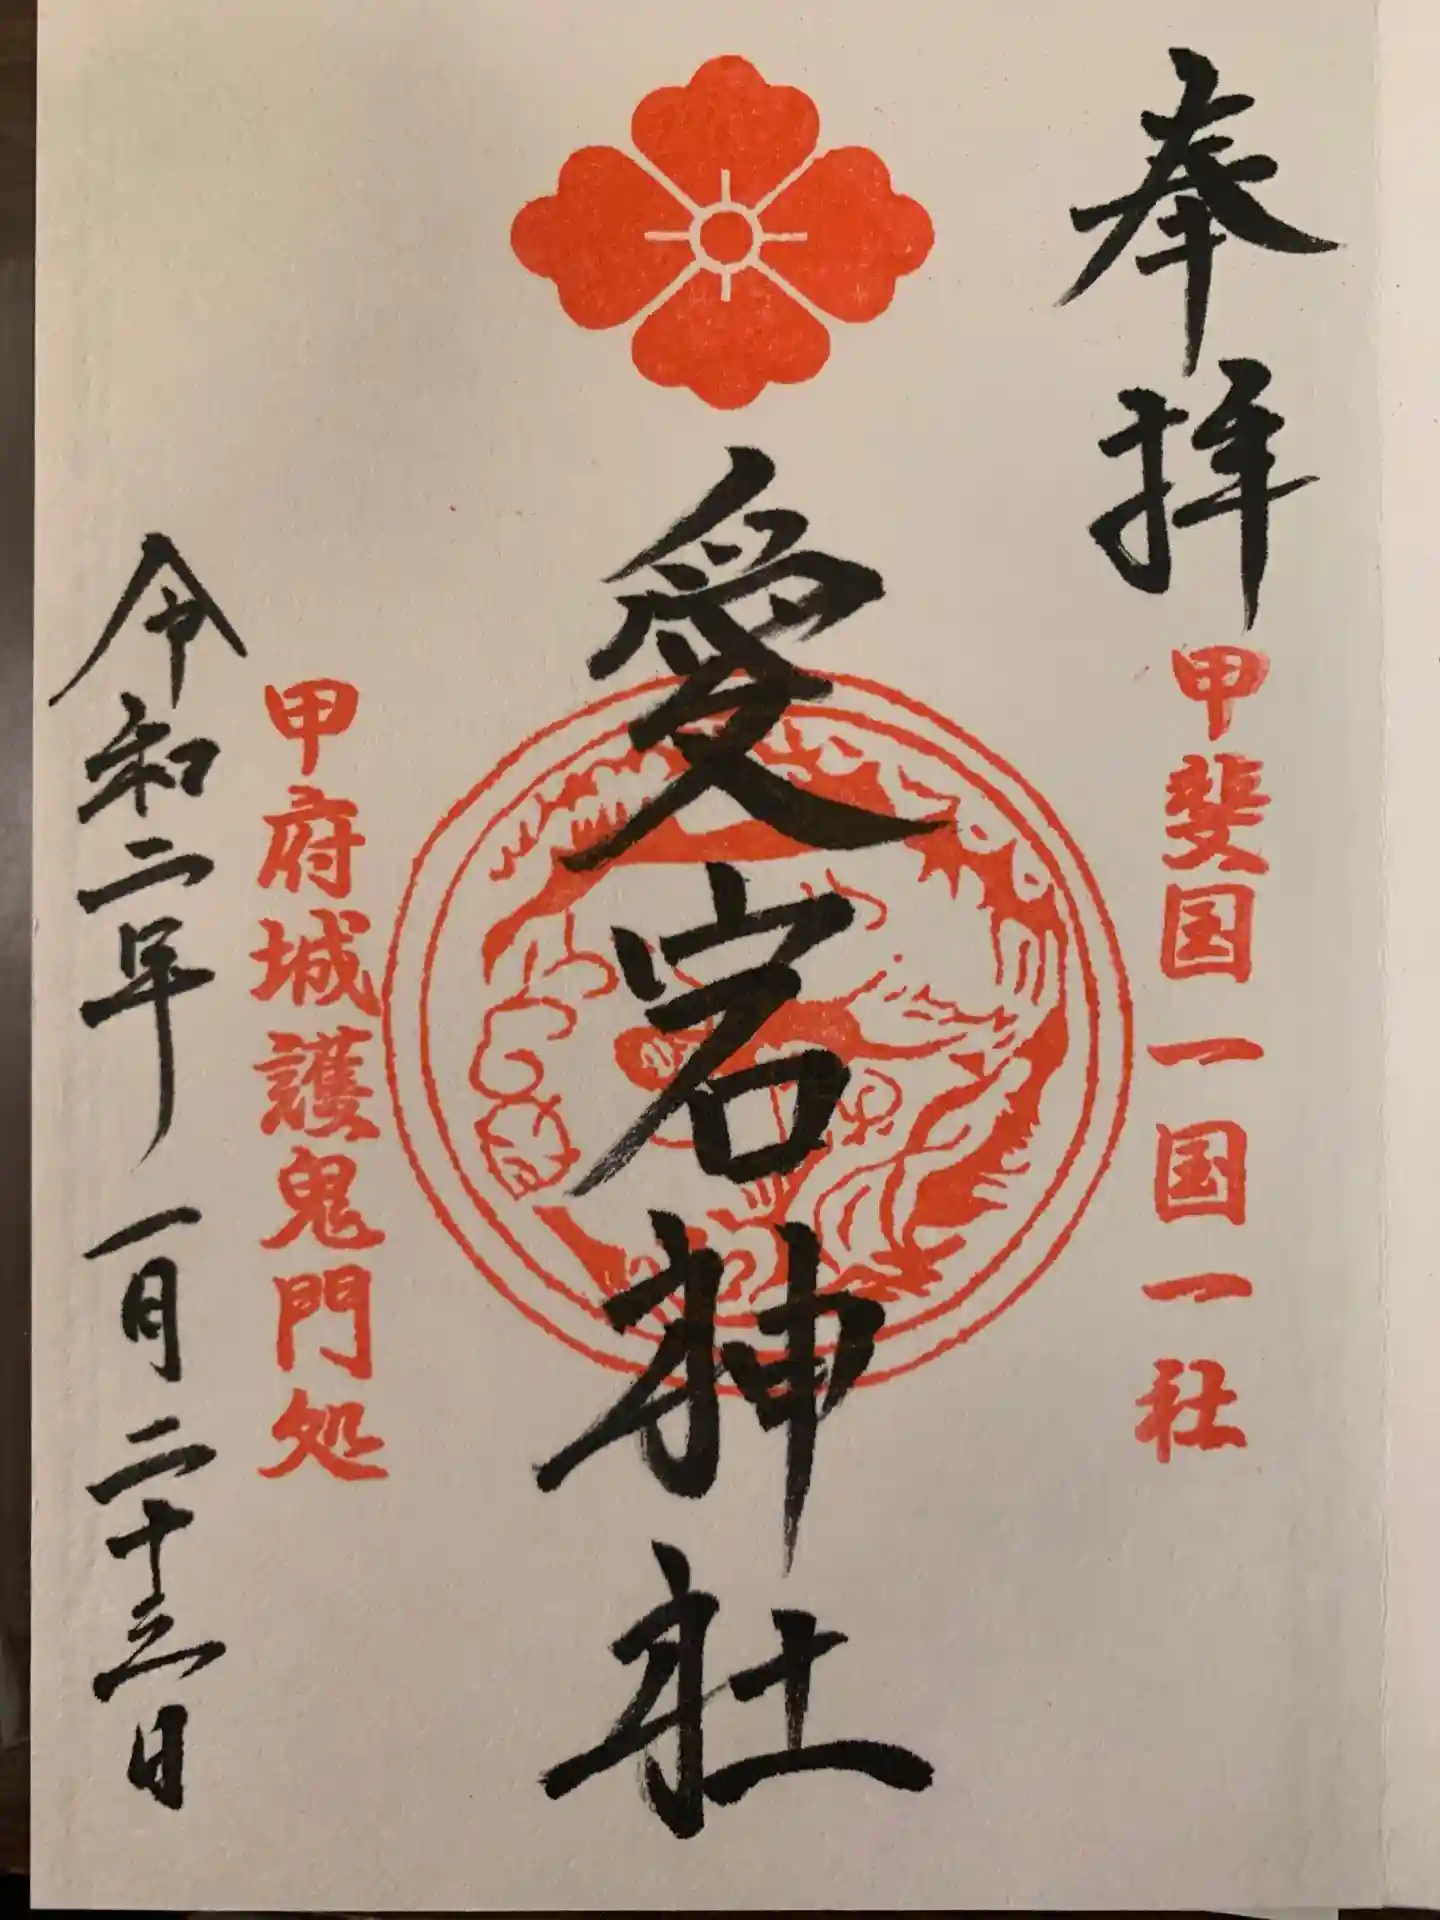 奉拝
甲斐国一国一社
愛宕神社
甲府城護鬼門処
令和二年 一月二十三日